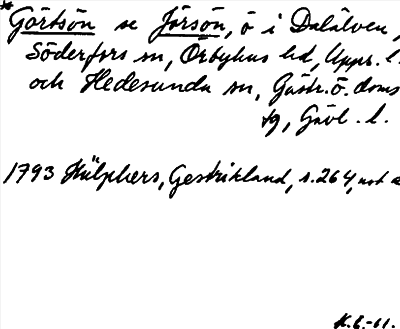 *Görtsön se Jörsön, ö i Dalälven,
Söderfors sn, Örbyhus hd, Upps. l.
och Hedesunda sn, Gästr. ö. doms
tg, Gävl. l.
1793 Hülphers, Gestrikland, s. 264, not a
K.G.-61.